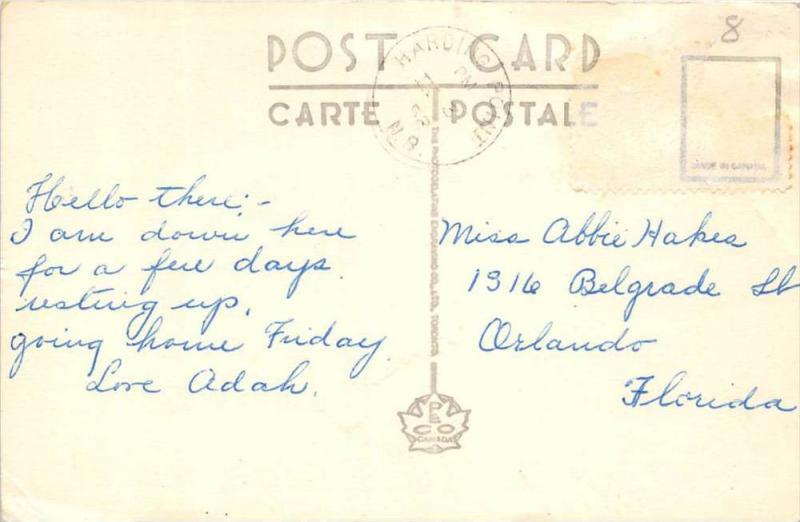 8
POST CARD
CARTE POSTALE
HARDING POINT
PM
N.B.
MADE IN CANADA
Hello there;-
I am down here
for a few days
resting up,
going home Friday.
Love Adah.
THE PHOTOGELATINE ENGRAVING CO., LTD., TORONTO
Miss Abbie Hakes
1316 Belgrade St
Orlando
Florida
PECO
CANADA